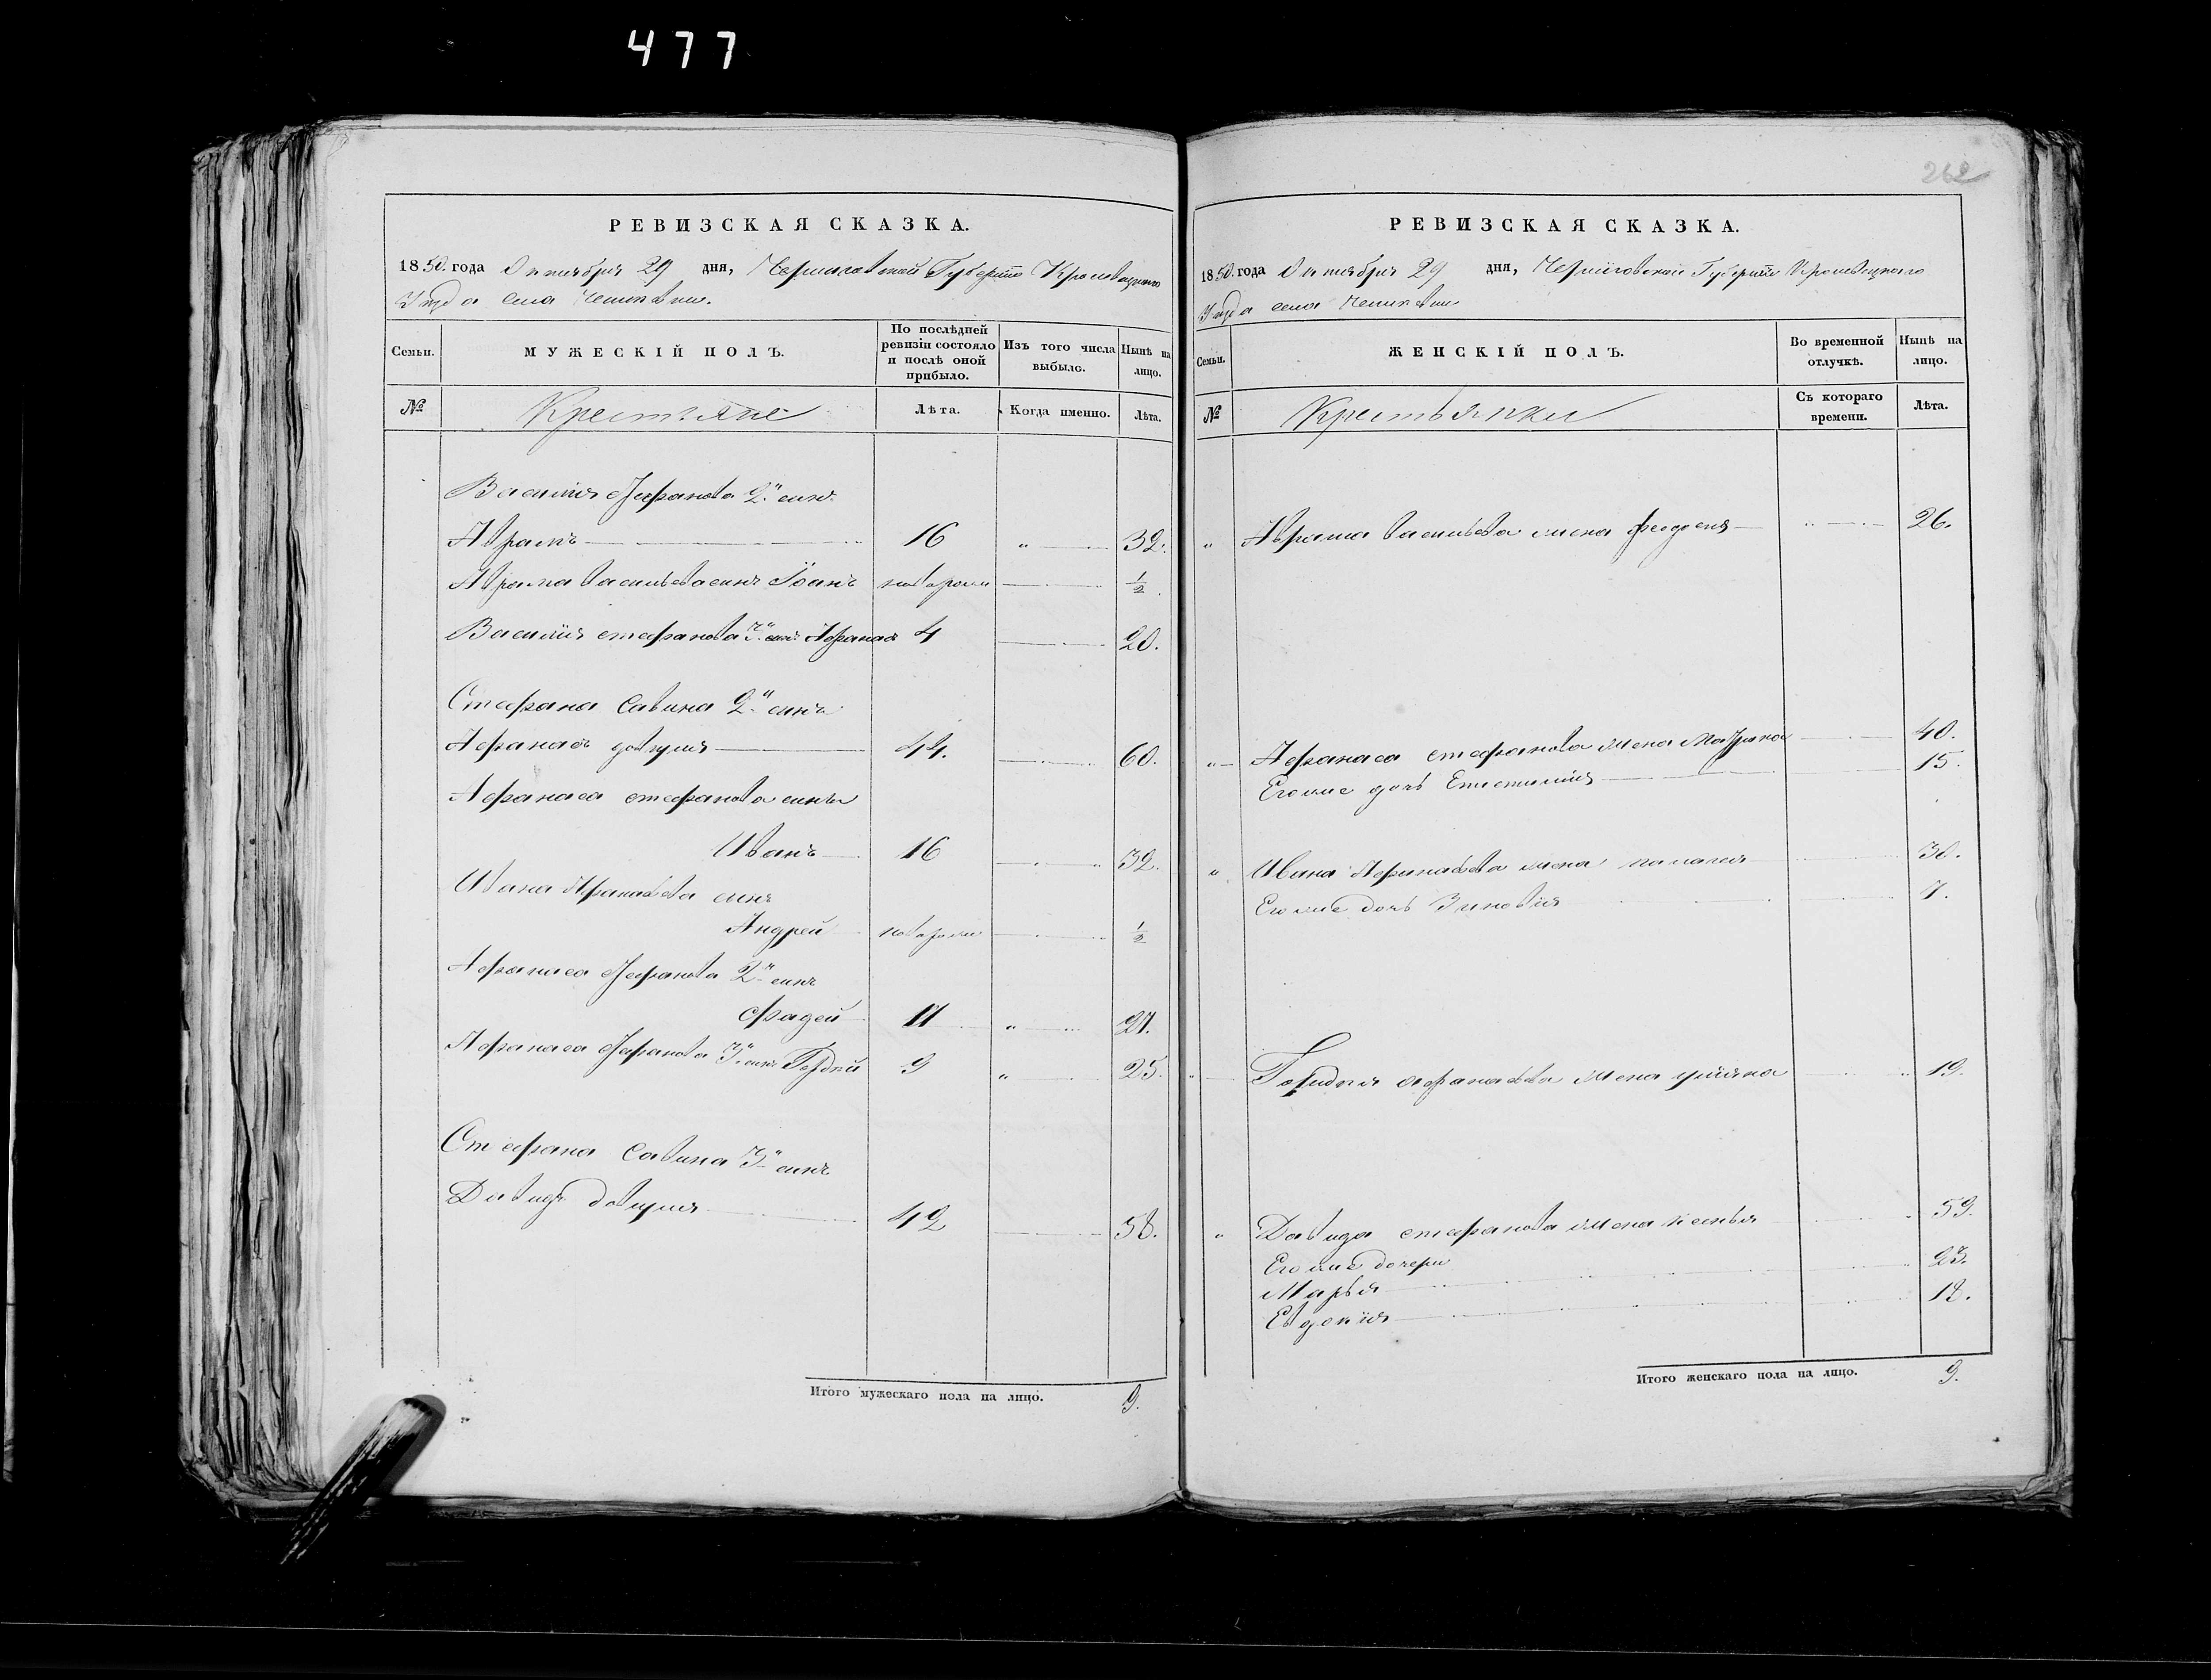 477
262
РЕВИЗСКАЯ СКАЗКА.
1850. года Октября 29 дня, Черниговской Губернiи Кролевецкаго
Уезда села
МУЖЕСКІЙ ПОЛЪ.
Семьи.
По послѣдней ревизіи состояло и послѣ оной прибыло.
Изъ того числа выбыло.
Нынѣ на лицо.
№
Крестьяне
Лѣта.
Когда именно.
Лѣта.
Василия Стефанова 2й сынъ
Аврамъ 16 " 32.
Аврама Васильева сынъ Іоанъ новорожд 1/2
Василия Стефанова 3й сынъ Афанасъ 4 20.
Стефана Савина 2й сынъ
Афанасъ 44. 60.
Афанаса Стефанова сынъ
Иванъ 16 32.
Ивана Афанасева сынъ
Андрей новорожд 1/2
Афанаса Стефанова 2й сынъ
Фадей 11 " 27.
Афанаса Стефанова 3й сынъ Гордей 9 " 25.
Стефана Савина 3й сынъ
Давидъ 42 58.
Итого мужескаго пола на лицо. 9.
РЕВИЗСКАЯ СКАЗКА.
1850. года Октября 29 дня, Черниговской Губернiи Кролевецкаго
Уезда села
Семьи.
ЖЕНСКІЙ ПОЛЪ.
Во временной отлучкѣ.
Нынѣ на лицо.
№
Крестьянки
Съ котораго времени.
Лѣта.
" Аврама Васильева жена Феодосия 26.
" Афанаса Стефанова жена Матрона 40.
Его же дочь 15.
" Ивана Афанасева жена 30.
Его же дочь Зиновия 7.
" Гордея Афанасева жена 19.
" Давида Стефанова жена Ксенья 59.
Его же дочери
Марья 23.
Евдокия 18.
Итого женскаго пола на лицо. 9.